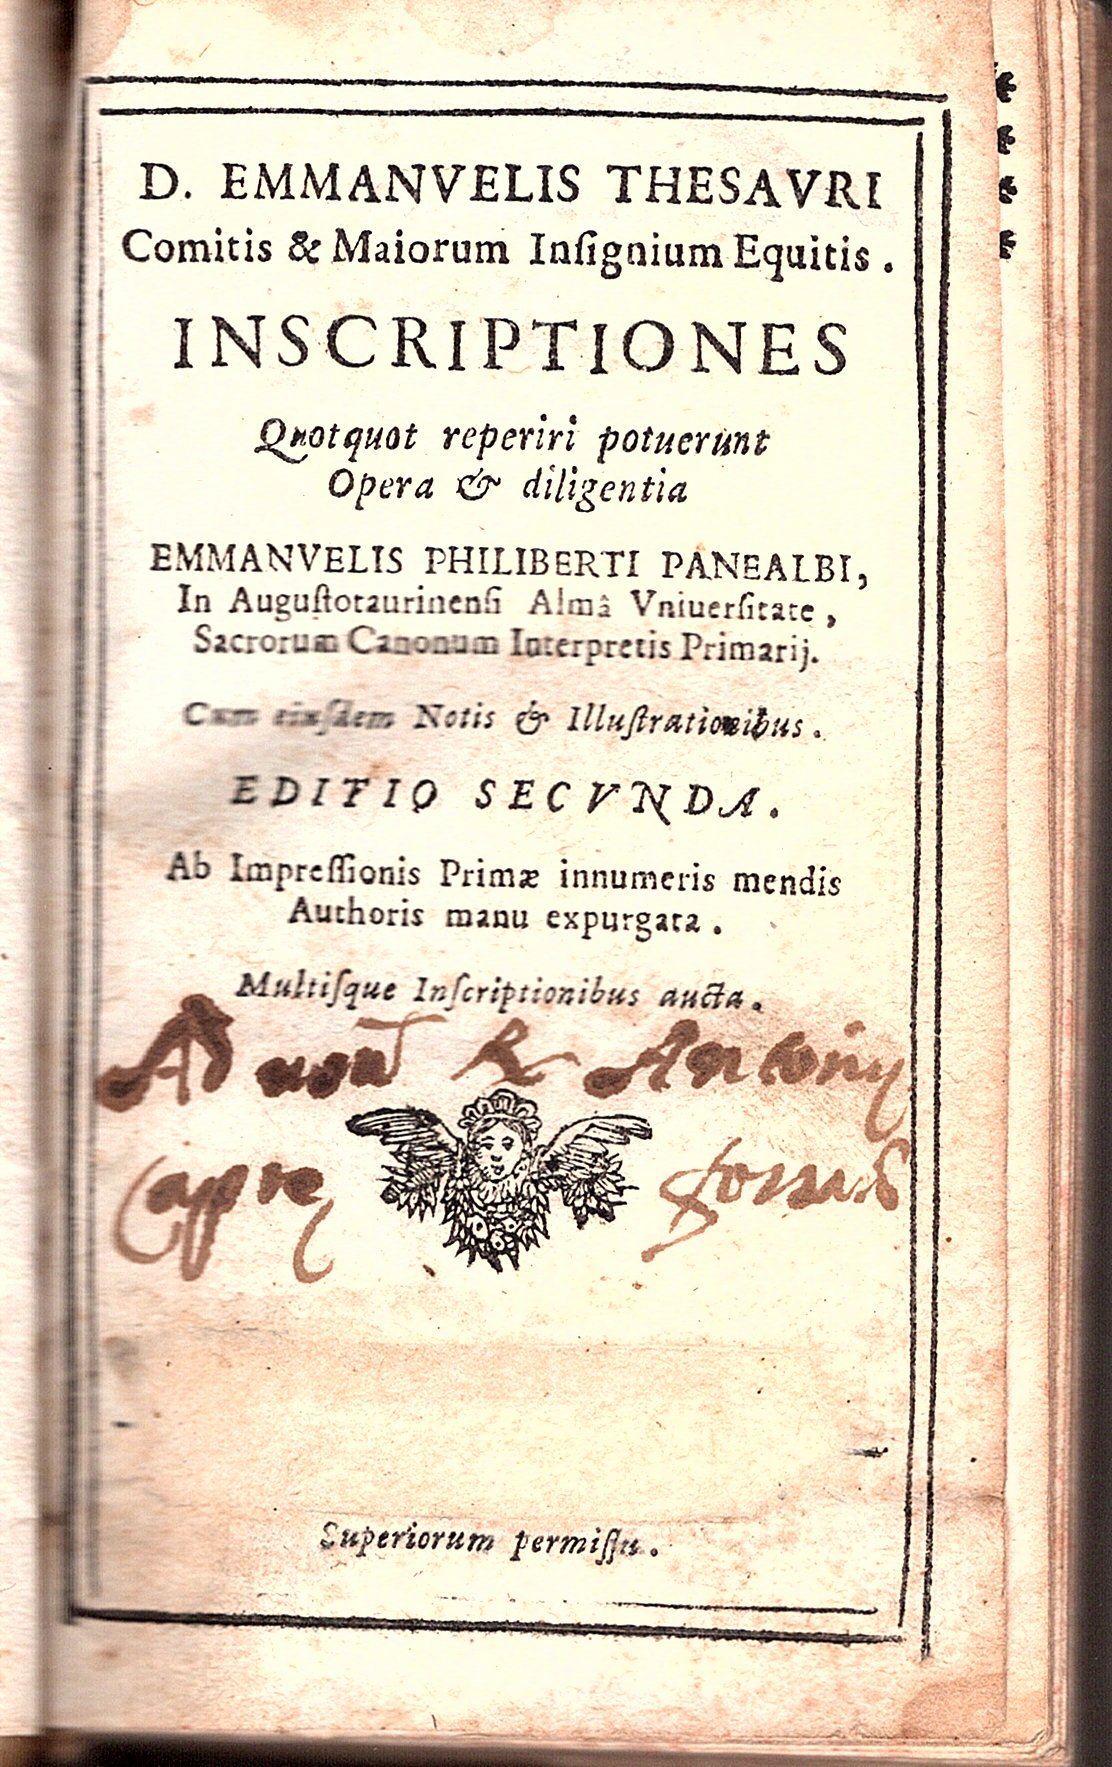 D. EMMANVELIS THESAVRI
Comitis & Maiorum Inſignium Equitis.
INSCRIPTIONES
Quotquot reperiri potuerunt
Opera & diligentia
EMMANVELIS PHILIBERTI PANEALBI,
In Auguſtotaurinenſi Almâ Vniuerſitate,
Sacrorum Canonum Interpretis Primarij.
Cum eiuſdem Notis & Illuſtrationibus.
EDITIO SECVNDA.
Ab Impreſſionis Primæ innumeris mendis
Authoris manu expurgata.
Multiſque Inſcriptionibus aucta.
Ad Antonij
Superiorum permiſſu.